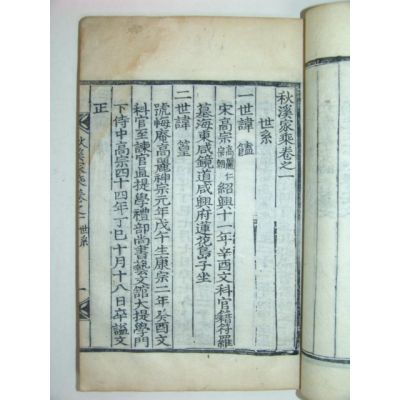 秋溪家乘卷之一
世系
一世諱饁
宋高宗高麗仁宗朝紹興十一年辛酉文科官籍符羅
墓海東咸鏡道咸興府蓮花島子坐
二世諱篁
號晦庵高麗神宗元年戊午生康宗二年癸酉文
科官至諫官直提學禮部尚書藝文館大提學門
下侍中高宗四十四年丁巳十月十八日卒謚文
正
秋溪家乘卷之一 世系 一